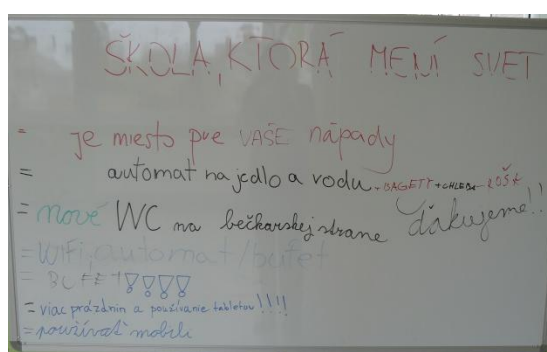 ŠKOLA, KTORÁ MENÍ SVET
- je miesto pre VAŠE nápady
= automat na jedlo a vodu - BAGETY + CHLEBA
= nové WC na bečkarskej strane ďakujeme!!
= Wifi, automat/bufet
= BUFET !!!!
= viac prázdnin a používanie tabletov !!!!
= používať mobili